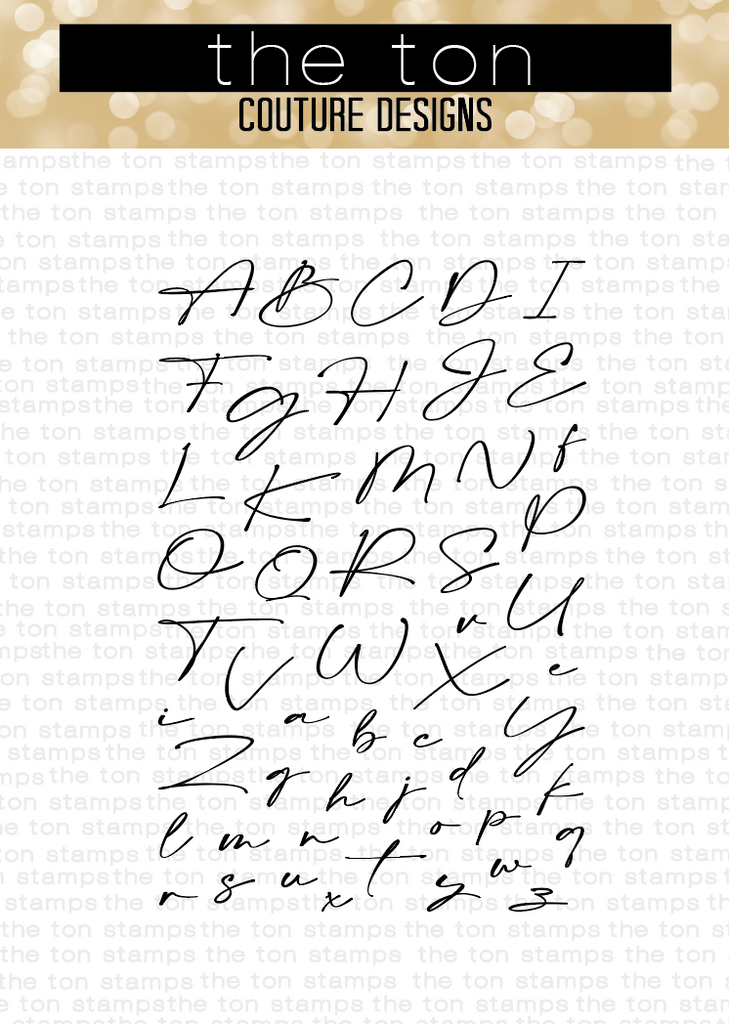 the ton
COUTURE DESIGNS
A B C D I
F G H J E
L K M N f
P
O Q R S
T V W v U
X e
i a b c Y
Z g h j d k
l m n o p q
r s u x t y w z